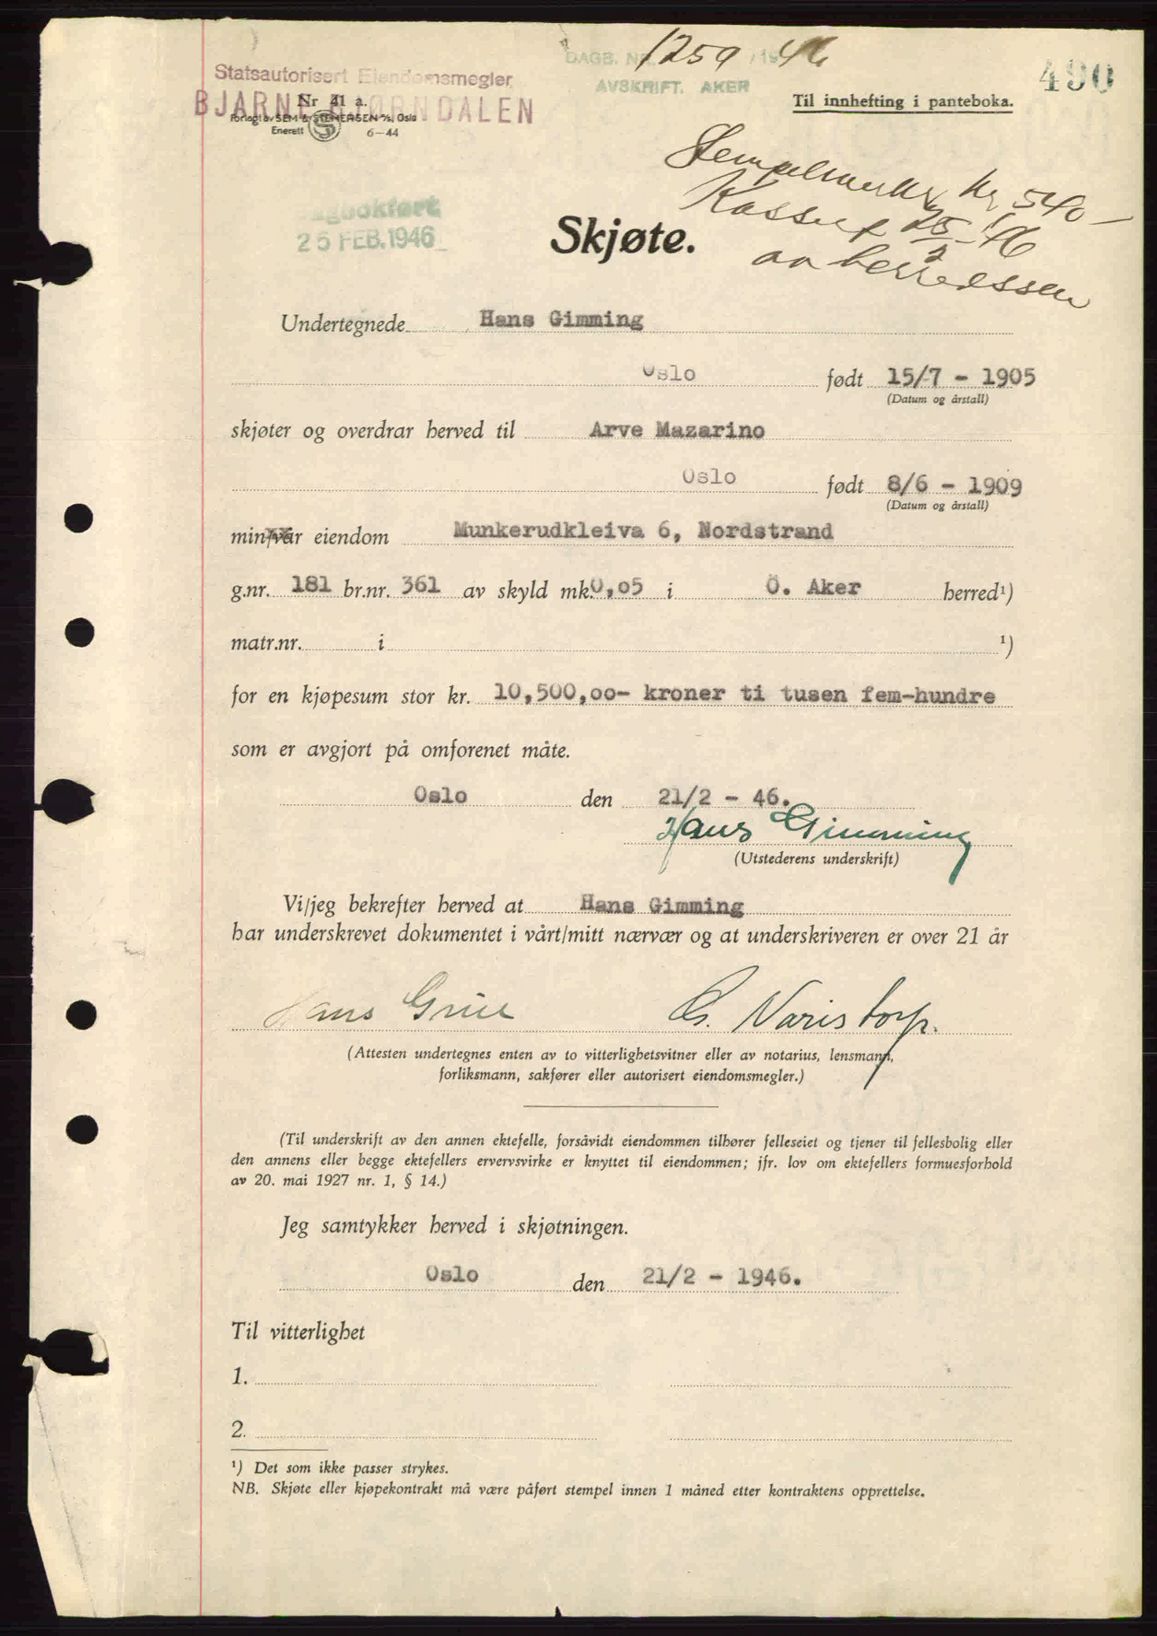 DAGB. NR. 1259 /1946
AVSKRIFT. AKER
490
Statsautorisert Eiendomsmegler
BJARNE BJØRNDALEN
Nr 41 a.
Forlagt av SEM & STENERSEN A/S, Oslo
Enerett 6-44
Til innhefting i panteboka.
Stempelmerke kr 540-
Kassert 25/2-46
Dagbokført
25 FEB. 1946
Skjøte.
Undertegnede Hans Gimming
Oslo født 15/7 - 1905
(Datum og årstall)
skjøter og overdrar herved til Arve Mazarino
Oslo født 8/6 - 1909
(Datum og årstall)
min/vår eiendom Munkerudkleiva 6, Nordstrand
g.nr. 181 br.nr. 361 av skyld mk. 0,05 i Ö. Aker herred¹)
matr.nr. i ¹)
for en kjøpesum stor kr. 10,500,00- kroner ti tusen fem-hundre
som er avgjort på omforenet måte.
Oslo den 21/2 - 46.
Hans Gimming
(Utstederens underskrift)
Vi/jeg bekrefter herved at Hans Gimming
har underskrevet dokumentet i vårt/mitt nærvær og at underskriveren er over 21 år
Hans Grue
(Attesten undertegnes enten av to vitterlighetsvitner eller av notarius, lensmann,
forliksmann, sakfører eller autorisert eiendomsmegler.)
(Til underskrift av den annen ektefelle, forsåvidt eiendommen tilhører felleseiet og tjener til fellesbolig eller
den annens eller begge ektefellers ervervsvirke er knyttet til eiendommen; jfr. lov om ektefellers formuesforhold
av 20. mai 1927 nr. 1, § 14.)
Jeg samtykker herved i skjøtningen.
Oslo den 21/2 - 1946.
Til vitterlighet
1.
2.
¹) Det som ikke passer strykes.
NB. Skjøte eller kjøpekontrakt må være påført stempel innen 1 måned etter kontraktens opprettelse.